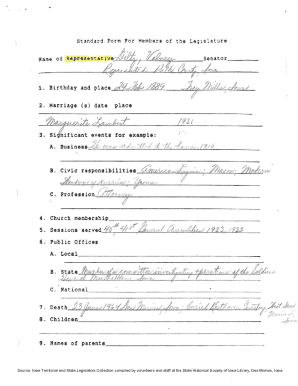 Standard Form For Members of the Legislature
Name of Representative Ditty, Velney Senator
Represented Polk County, Iowa
1. Birthday and place 24 Feb 1889
2. Marriage (s) date place
Marguerite Lambert 1921
3. Significant events for example:
A. Business He was admitted to the bar in 1910
B. Civic responsibilities American Legion; Mason, Modern
Woodmen of America;
C. Profession Attorney
4. Church membership
5. Sessions served General Assemblies 1923,
6. Public Offices
A. Local
B. State Member of committee investigating operations of the Soldiers
C. National
7. Death 23 June 1964 Des Moines, Iowa
8. Children
9. Names of parents
Source: Iowa Territorial and State Legislators Collection compiled by volunteers and staff at the State Historical Society of Iowa Library, Des Moines, Iowa.